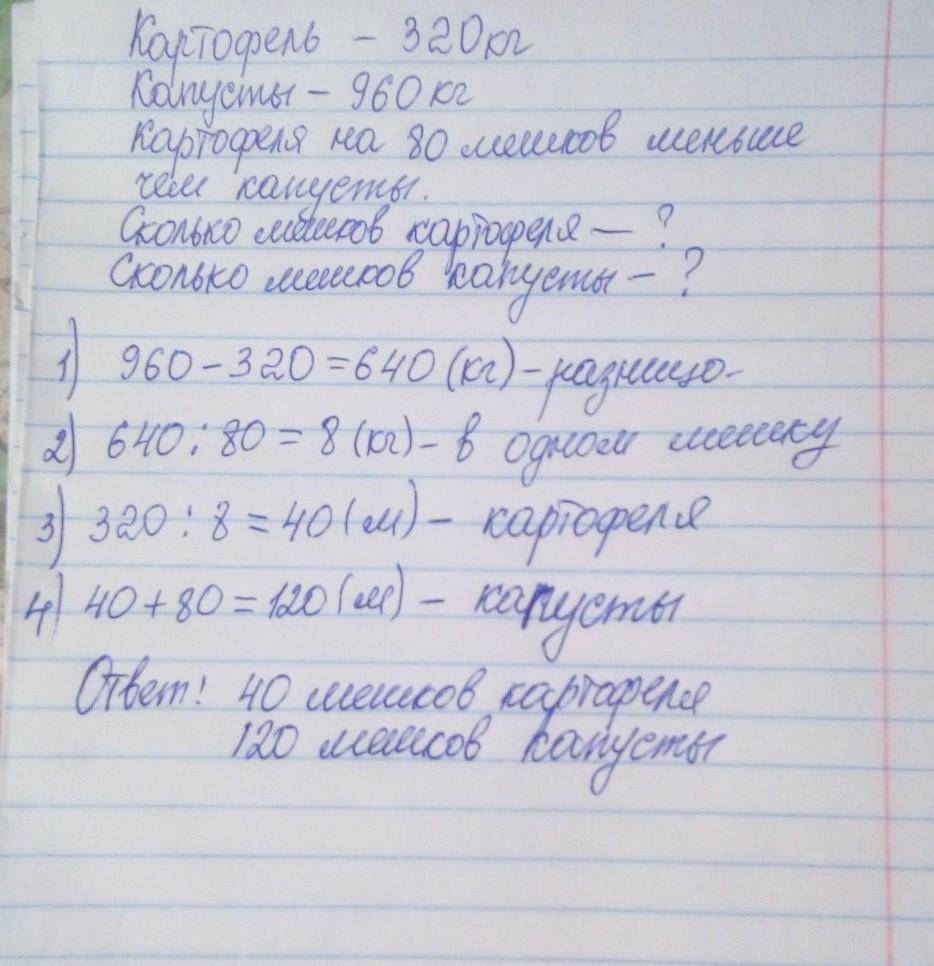 Картофель - 320кг
Капусты - 960 кг
Картофеля на 80 мешков меньше
чем капусты.
Сколько мешков картофеля — ?
Сколько мешков капусты - ?
1) 960 - 320 = 640 (кг) - разница
2) 640 : 80 = 8 (кг) - в одном мешку
3) 320 : 8 = 40 (м) - картофеля
4) 40 + 80 = 120 (м) - капусты
Ответ! 40 мешков картофеля
120 мешков капусты